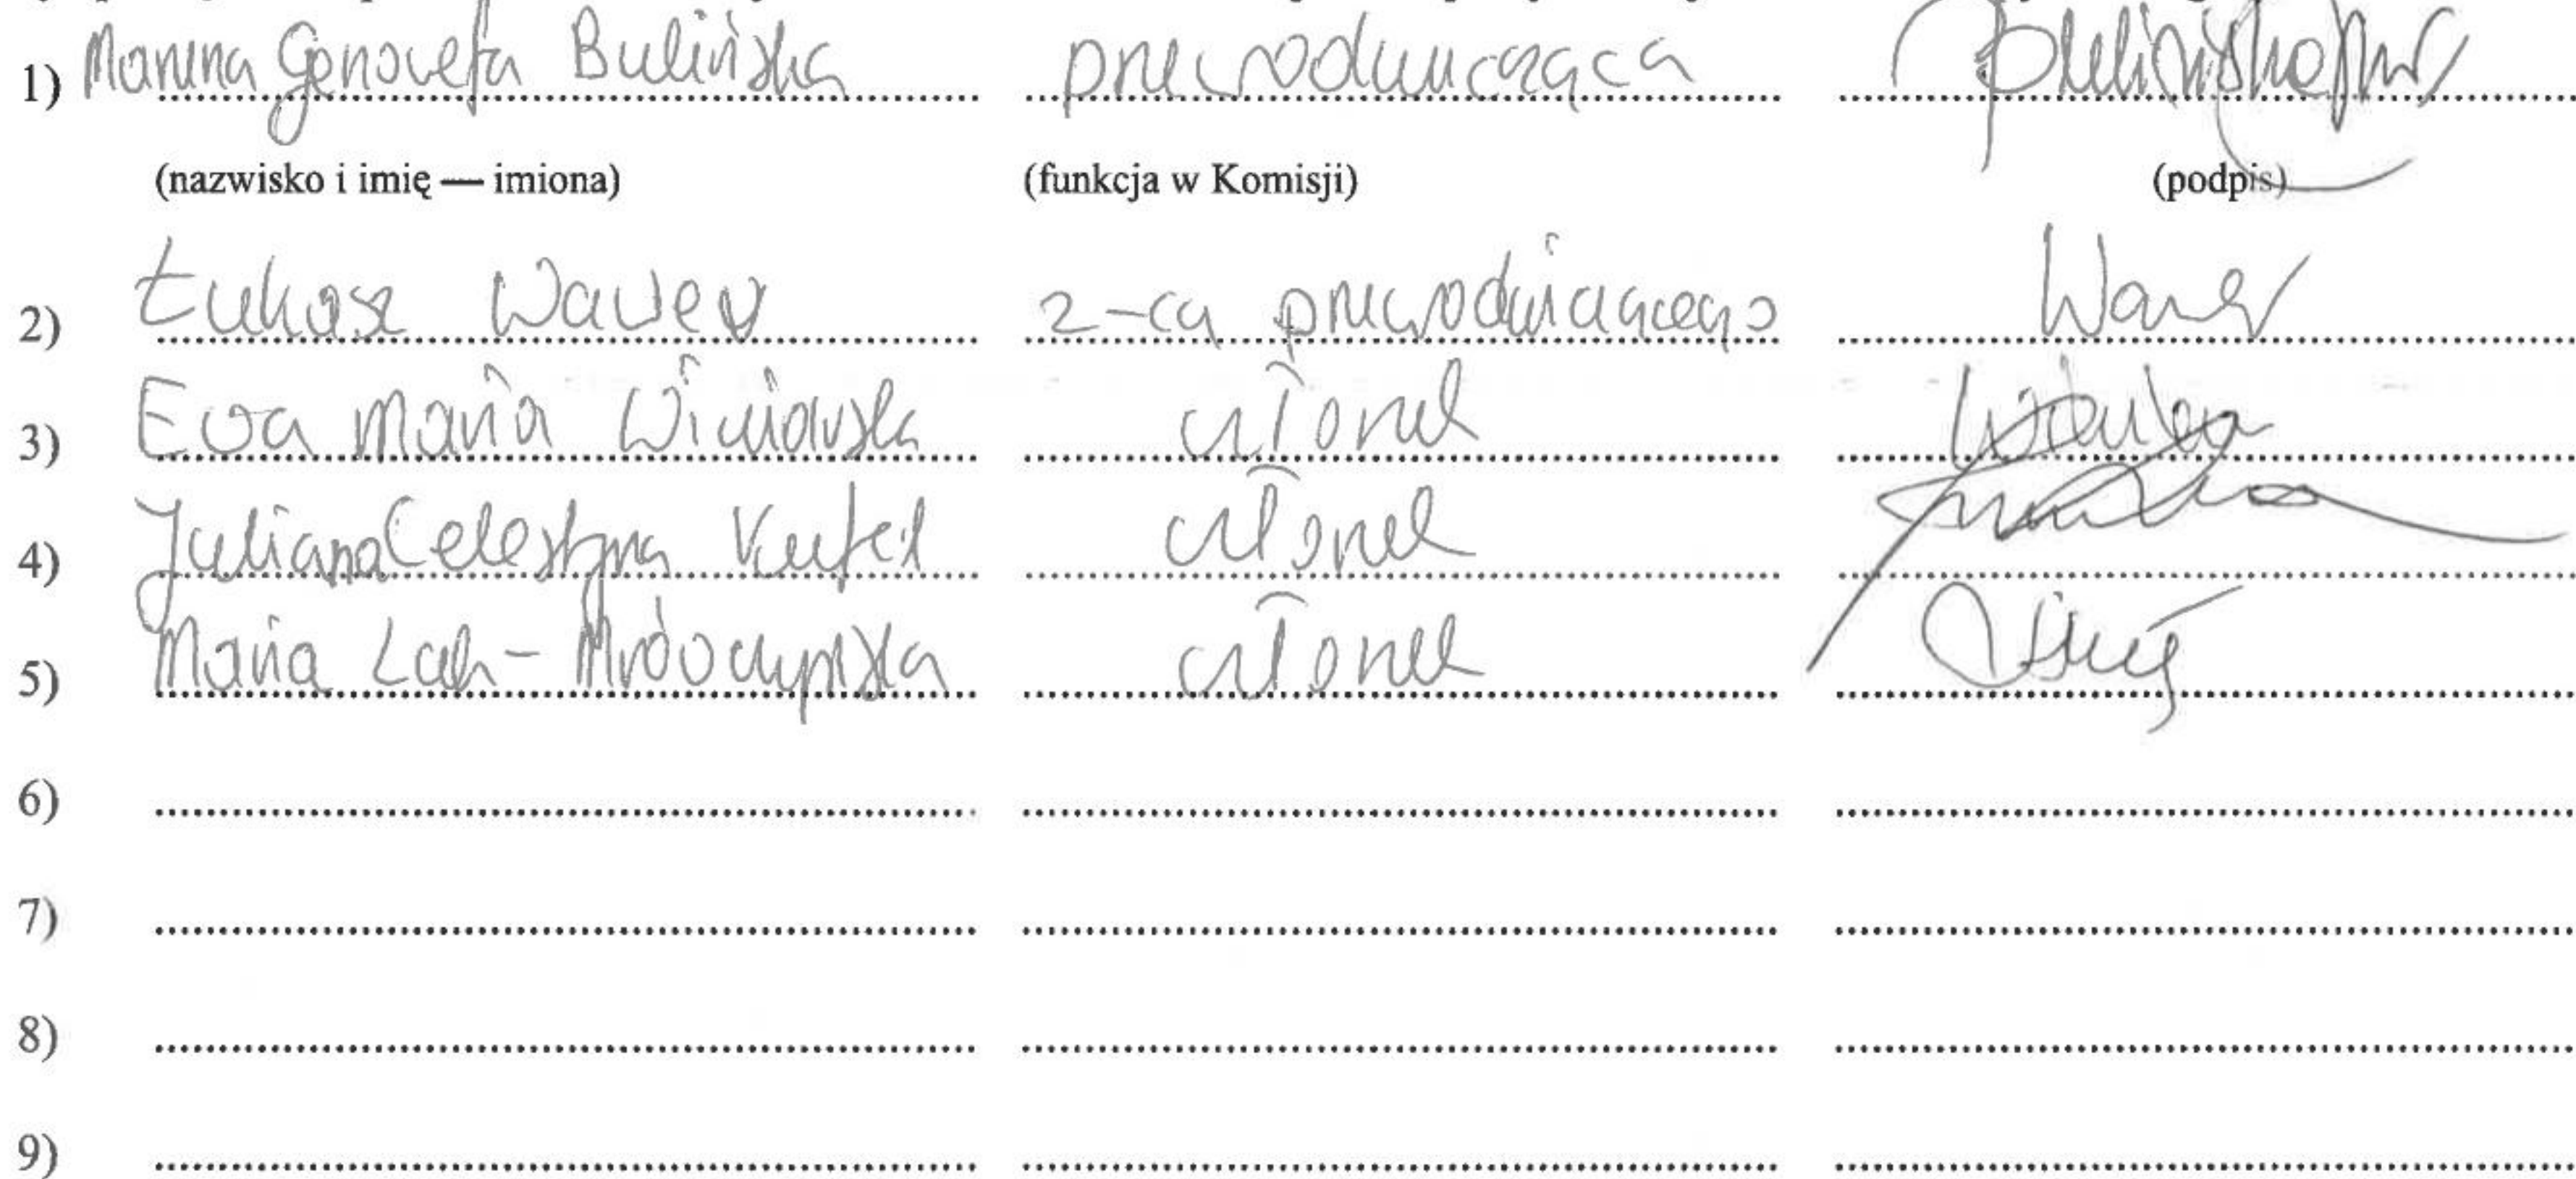 1) Marzena Genowefa Bulińska przewodnicząca
(nazwisko i imię — imiona) (funkcja w Komisji) (podpis)
2) Łukasz Wawer z-ca przewodniczącego Wawer
3) Ewa Maria członek
4) Juliana Celestyna członek
5) Maria członek
6)
7)
8)
9)